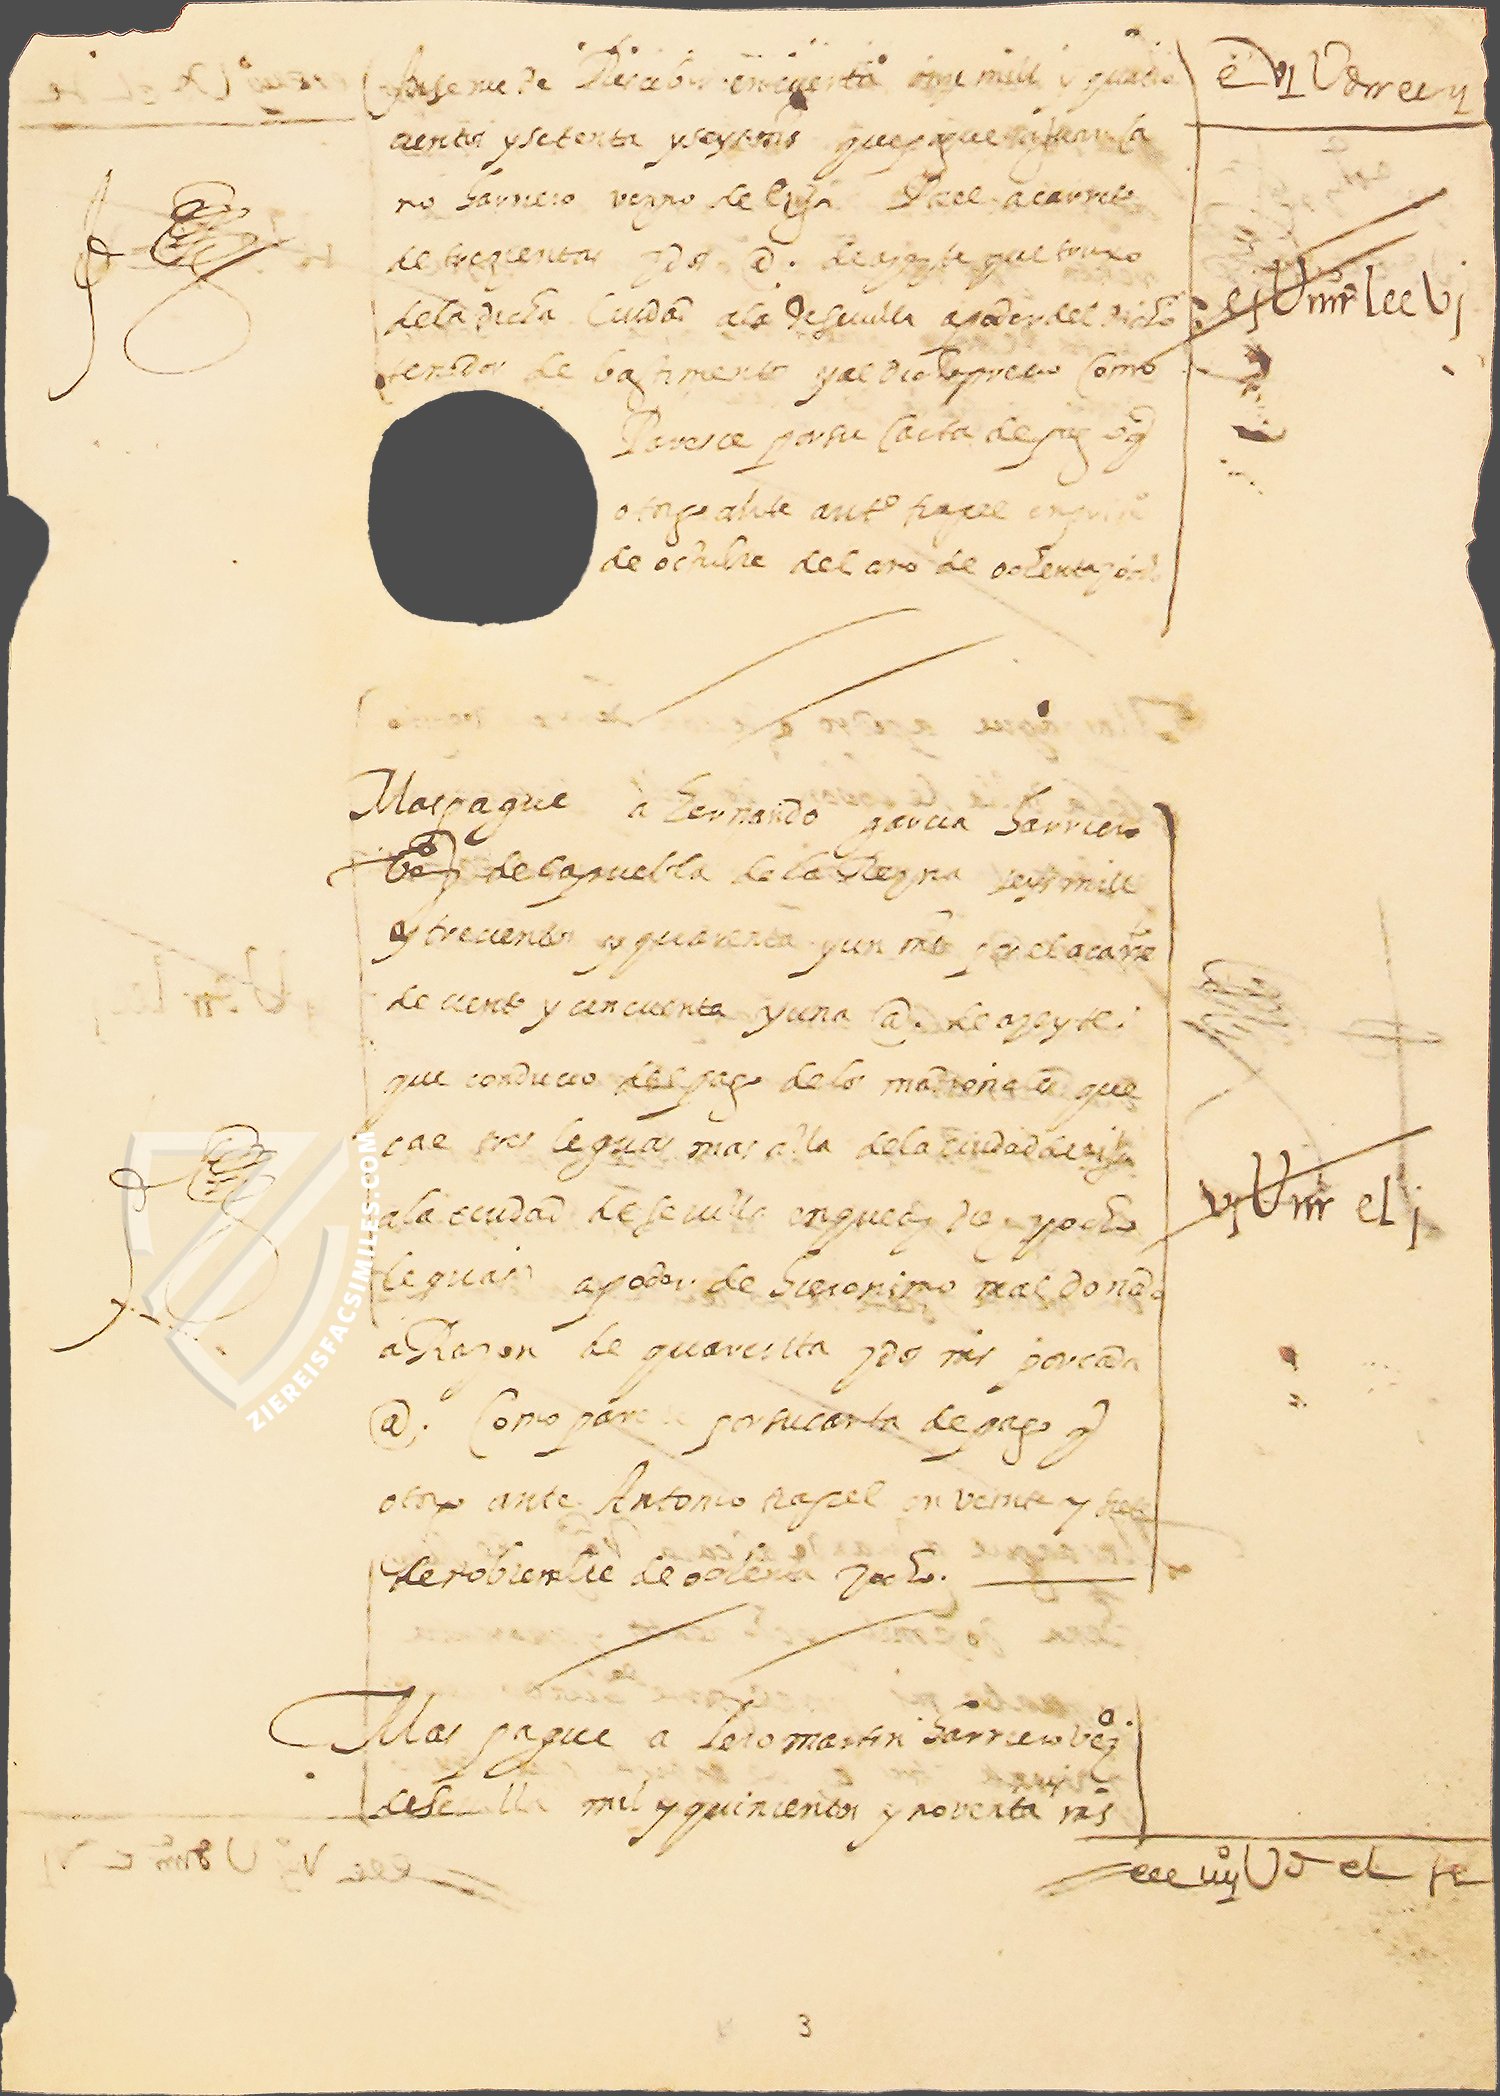 anseme de Rescebir en cuenta onze mill y quatro
cientos y setenta y seys mrs que pague a juan ca
no harriero vezino de ezija Por el acarreto
de trezientas y dos @. de azeyte que truxo
de la dicha ciudad a la de sevilla a poder del dicho
tenedor de bastimentos y al dicho precio Como
Paresce por su carta de pago q
otorgo ante antº rapel en
de octubre del año de ochenta y ocho
Mas pague a hernando garcia harriero
vº de la puebla de la Reyna seys mill
y trecientos y quarenta y un mrs por el acarre
de ciento y cincuenta y una @. de azeyte
que conduxo del pago de los madroñales que
cae tres leguas mas alla de la ciudad de ezija
a la ciudad de sevilla en que ay diez y ocho
leguas a poder de hieronimo maldonado
a Razon de quarenta y dos mrs por cada
@. Como parece por su carta de pago q
otorgo ante Antonio rapel en veinte y siete
de nobiembre de ochenta y ocho.
Mas pague a Pedro martin harriero vº
de sevilla mil y quinientos y noventa mrs
3
ZIEREISFACSIMILES.COM